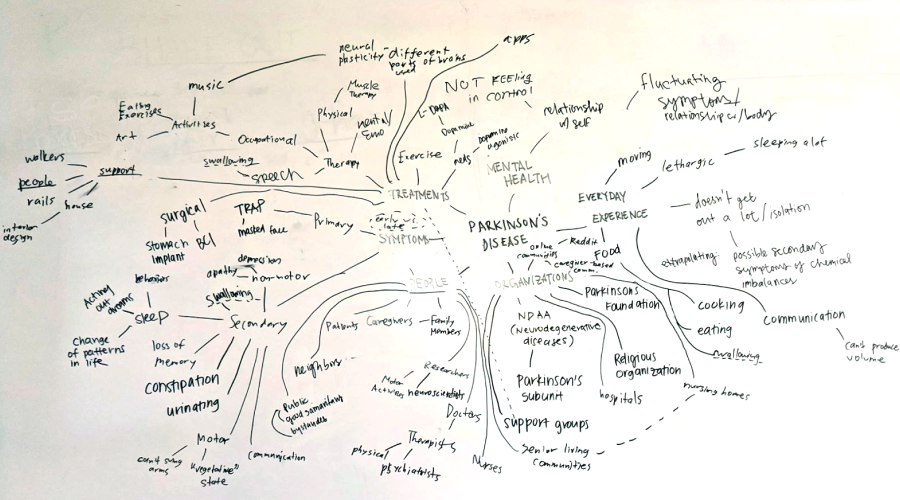 apps
neural
plasticity - different
parts of brains
used
music
Muscle
Therapy
Physical
mental/
Emo
Eating
Exercises
Activities
Art
Occupational
swallowing
speech
Therapy
NOT FEEling
in control
L-DOPA
Dopamine
dopamine
agonistic
meds
Exercise
relationship
w/ self
fluctuating
symptoms/
relationship w/ body
walkers
people
rails
house
interior
design
support
TREATMENTS
MENTAL
HEALTH
moving
lethargic
sleeping a lot
EVERYDAY
EXPERIENCE
doesn't get
out a lot / isolation
extraplating possible secondary
symptoms of chemical
imbalances
surgical
stomach
implant
BCI
TRAP
masked face
Primary
early vs.
late
SYMPTOMS
PARKINSON'S
DISEASE
online
communities
Reddit
caregiver-based
comm.
FOOD
cooking
eating
swallowing
communication
can't produce
volume
depression
apathy
non-motor
swallowing
Secondary
behavior
Acting
out
dreams
sleep
change
of patterns
in life
loss of
memory
constipation
urinating
Motor
can't swing
arms
"vegetative"
state
communication
PEOPLE
Patients
Caregivers
Family
Members
neighbors
Public
good samaritans
bystander
Researchers
Motor
neuroscientists
Doctors
Therapists
physical
psychiatrists
Nurses
ORGANIZATIONS
Parkinson's
Foundation
NDAA
(Neurodegenerative
diseases)
Parkinson's
subunit
Religious
organization
hospitals
nursing homes
support groups
senior living
communities